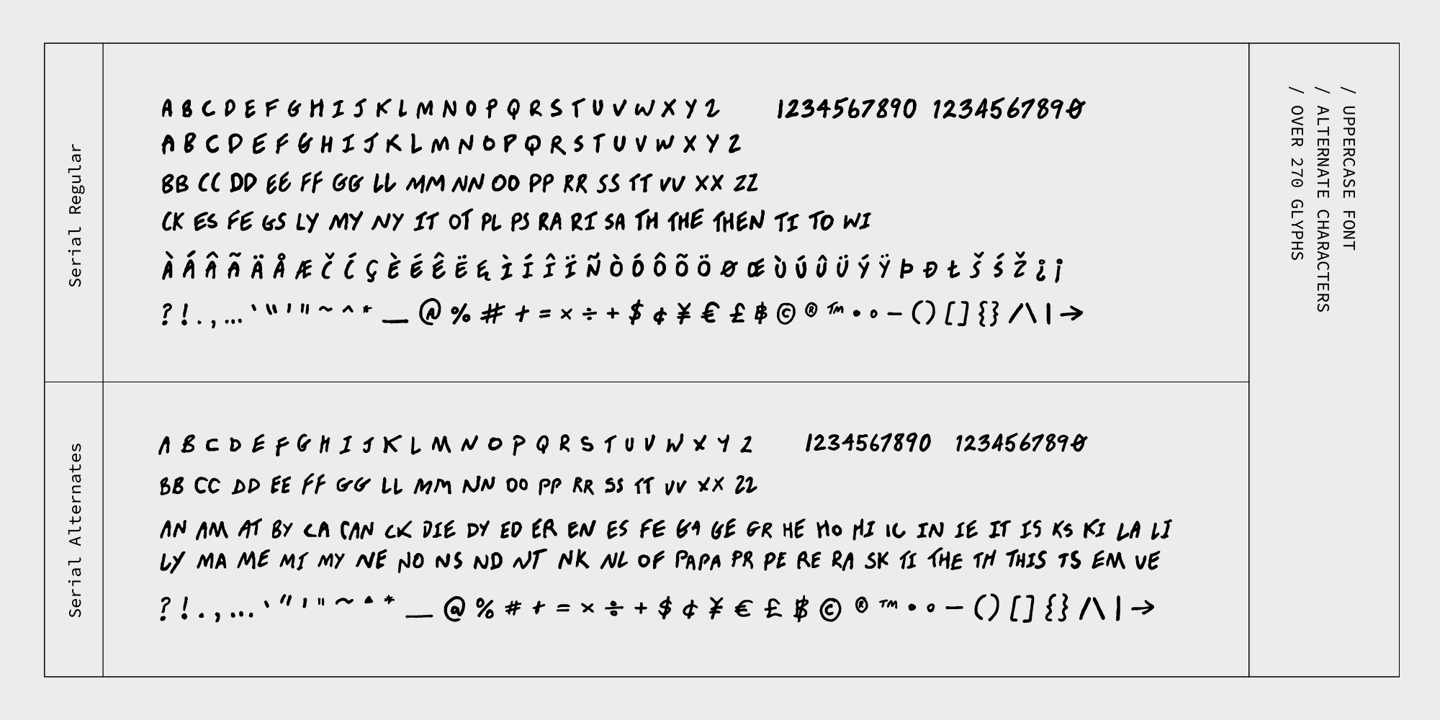 Serial Regular
A B C D E F G H I J K L M N O P Q R S T U V W X Y Z 1234567890 1234567890
A B C D E F G H I J K L M N O P Q R S T U V W X Y Z
BB CC DD EE FF GG LL MM NN OO PP RR SS TT VV XX ZZ
CK ES FE GS LY MY NY IT OT PL PS RA RI SA TH THE THEN TI TO WI
À Á Â Ã Ä Å Æ Č Ć Ç È É Ê Ë Ę Ì Í Î Ï Ñ Ò Ó Ô Õ Ö Ø Œ Ù Ú Û Ü Ý Ÿ Þ Ð Ł Š Ś Ž ¿ ¡
? ! . , ... ‵ ‶ ' " ~ ^ * _ @ % # + = × ÷ + $ ¢ ¥ € £ ฿ © ® ™ • ° – ( ) [ ] { } / \ | →
Serial Alternates
A B C D E F G H I J K L M N O P Q R S T U V W X Y Z 1234567890 1234567890
BB CC DD EE FF GG LL MM NN OO PP RR SS TT VV XX ZZ
AN AM AT BY CA CAN CK DIE DY ED ER EN ES FE GA GE GR HE HO HI IC IN IE IT IS KS KI LA LI
LY MA ME MI MY NE NO NS ND NT NK NL OF PAPA PR PE RE RA SK TI THE TH THIS TS EM VE
? ! . , ... ‵ " ' " ~ ^ * _ @ % # + = × ÷ + $ ¢ ¥ € £ ฿ © ® ™ • ° – ( ) [ ] { } / \ | →
/ UPPERCASE FONT
/ ALTERNATE CHARACTERS
/ OVER 270 GLYPHS